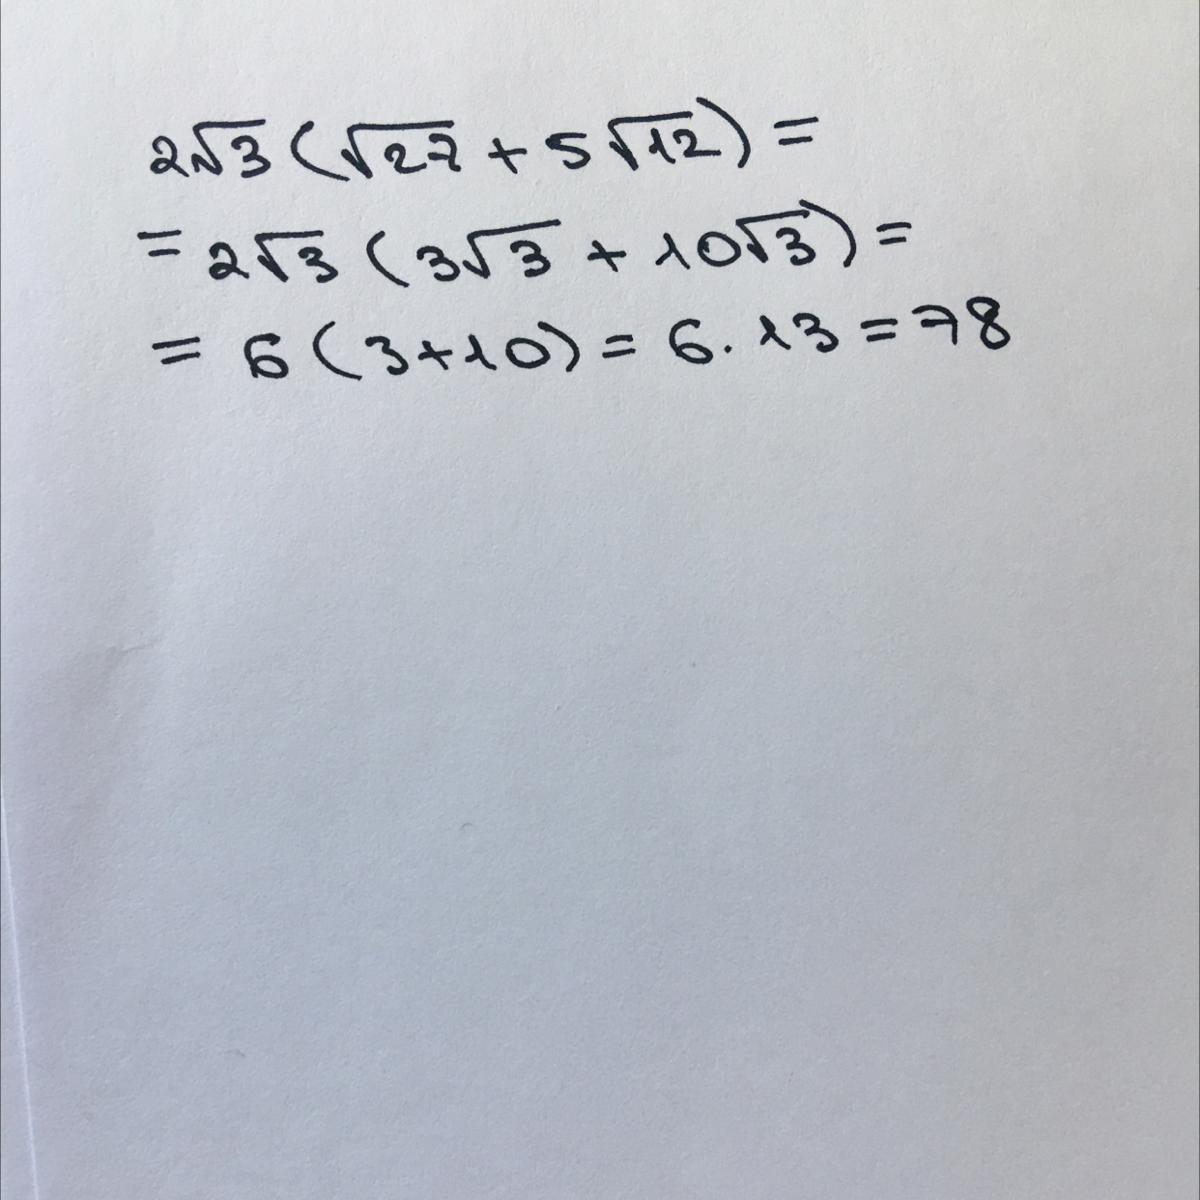 2√3(√27 + 5√12) =
= 2√3 (3√3 + 10√3) =
= 6 (3+10) = 6. 13 = 78